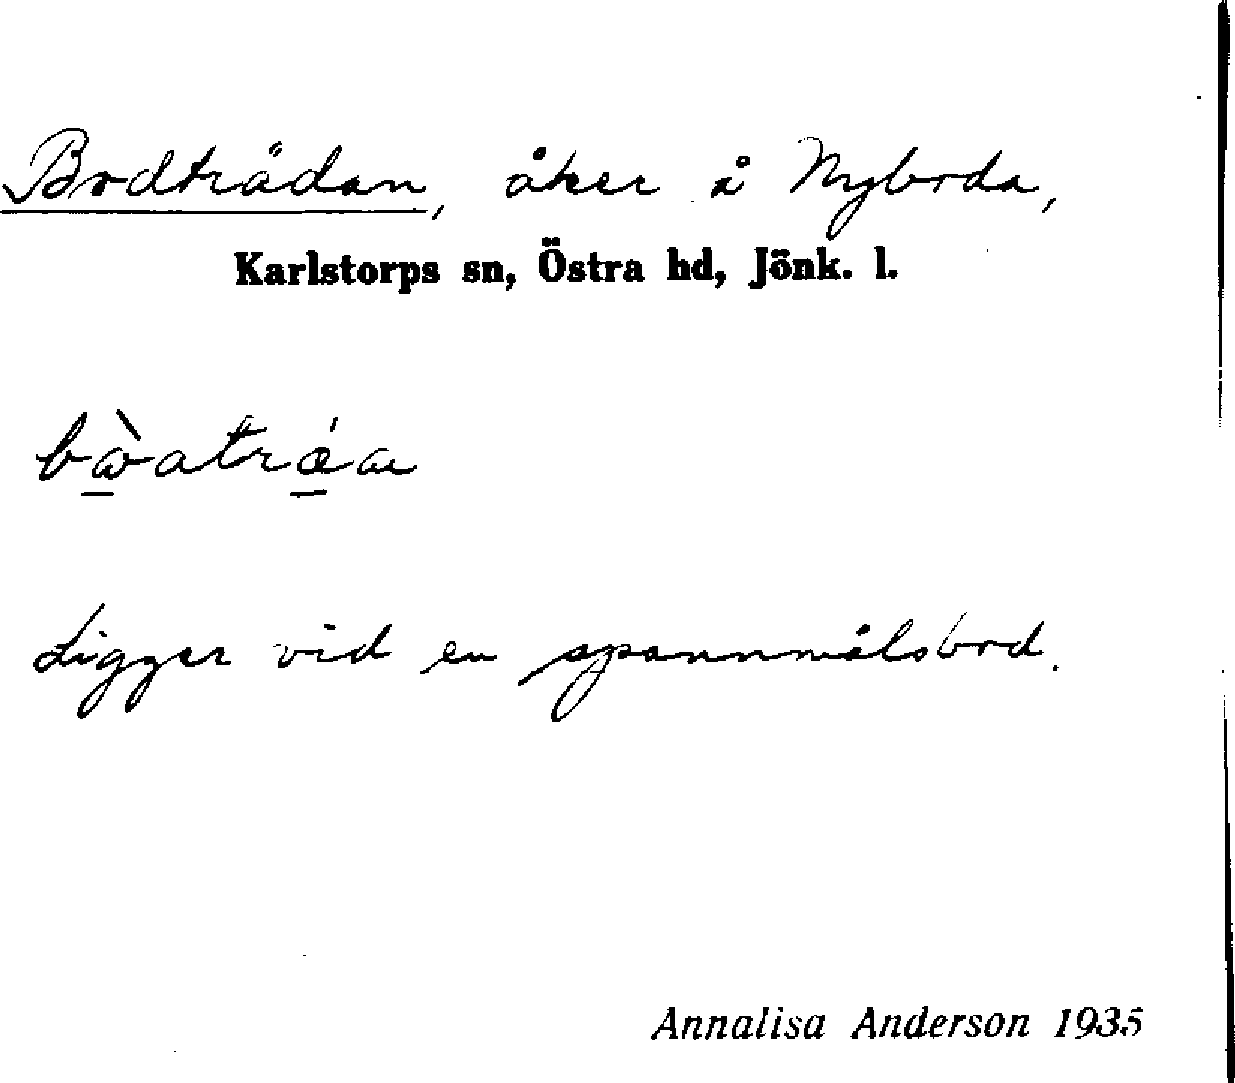 Bodträdan, åker å Nyboda,
Karlstorps sn, Östra hd, Jönk. l.
Ligger vid en spannmålsbod.
Annalisa Anderson 1935